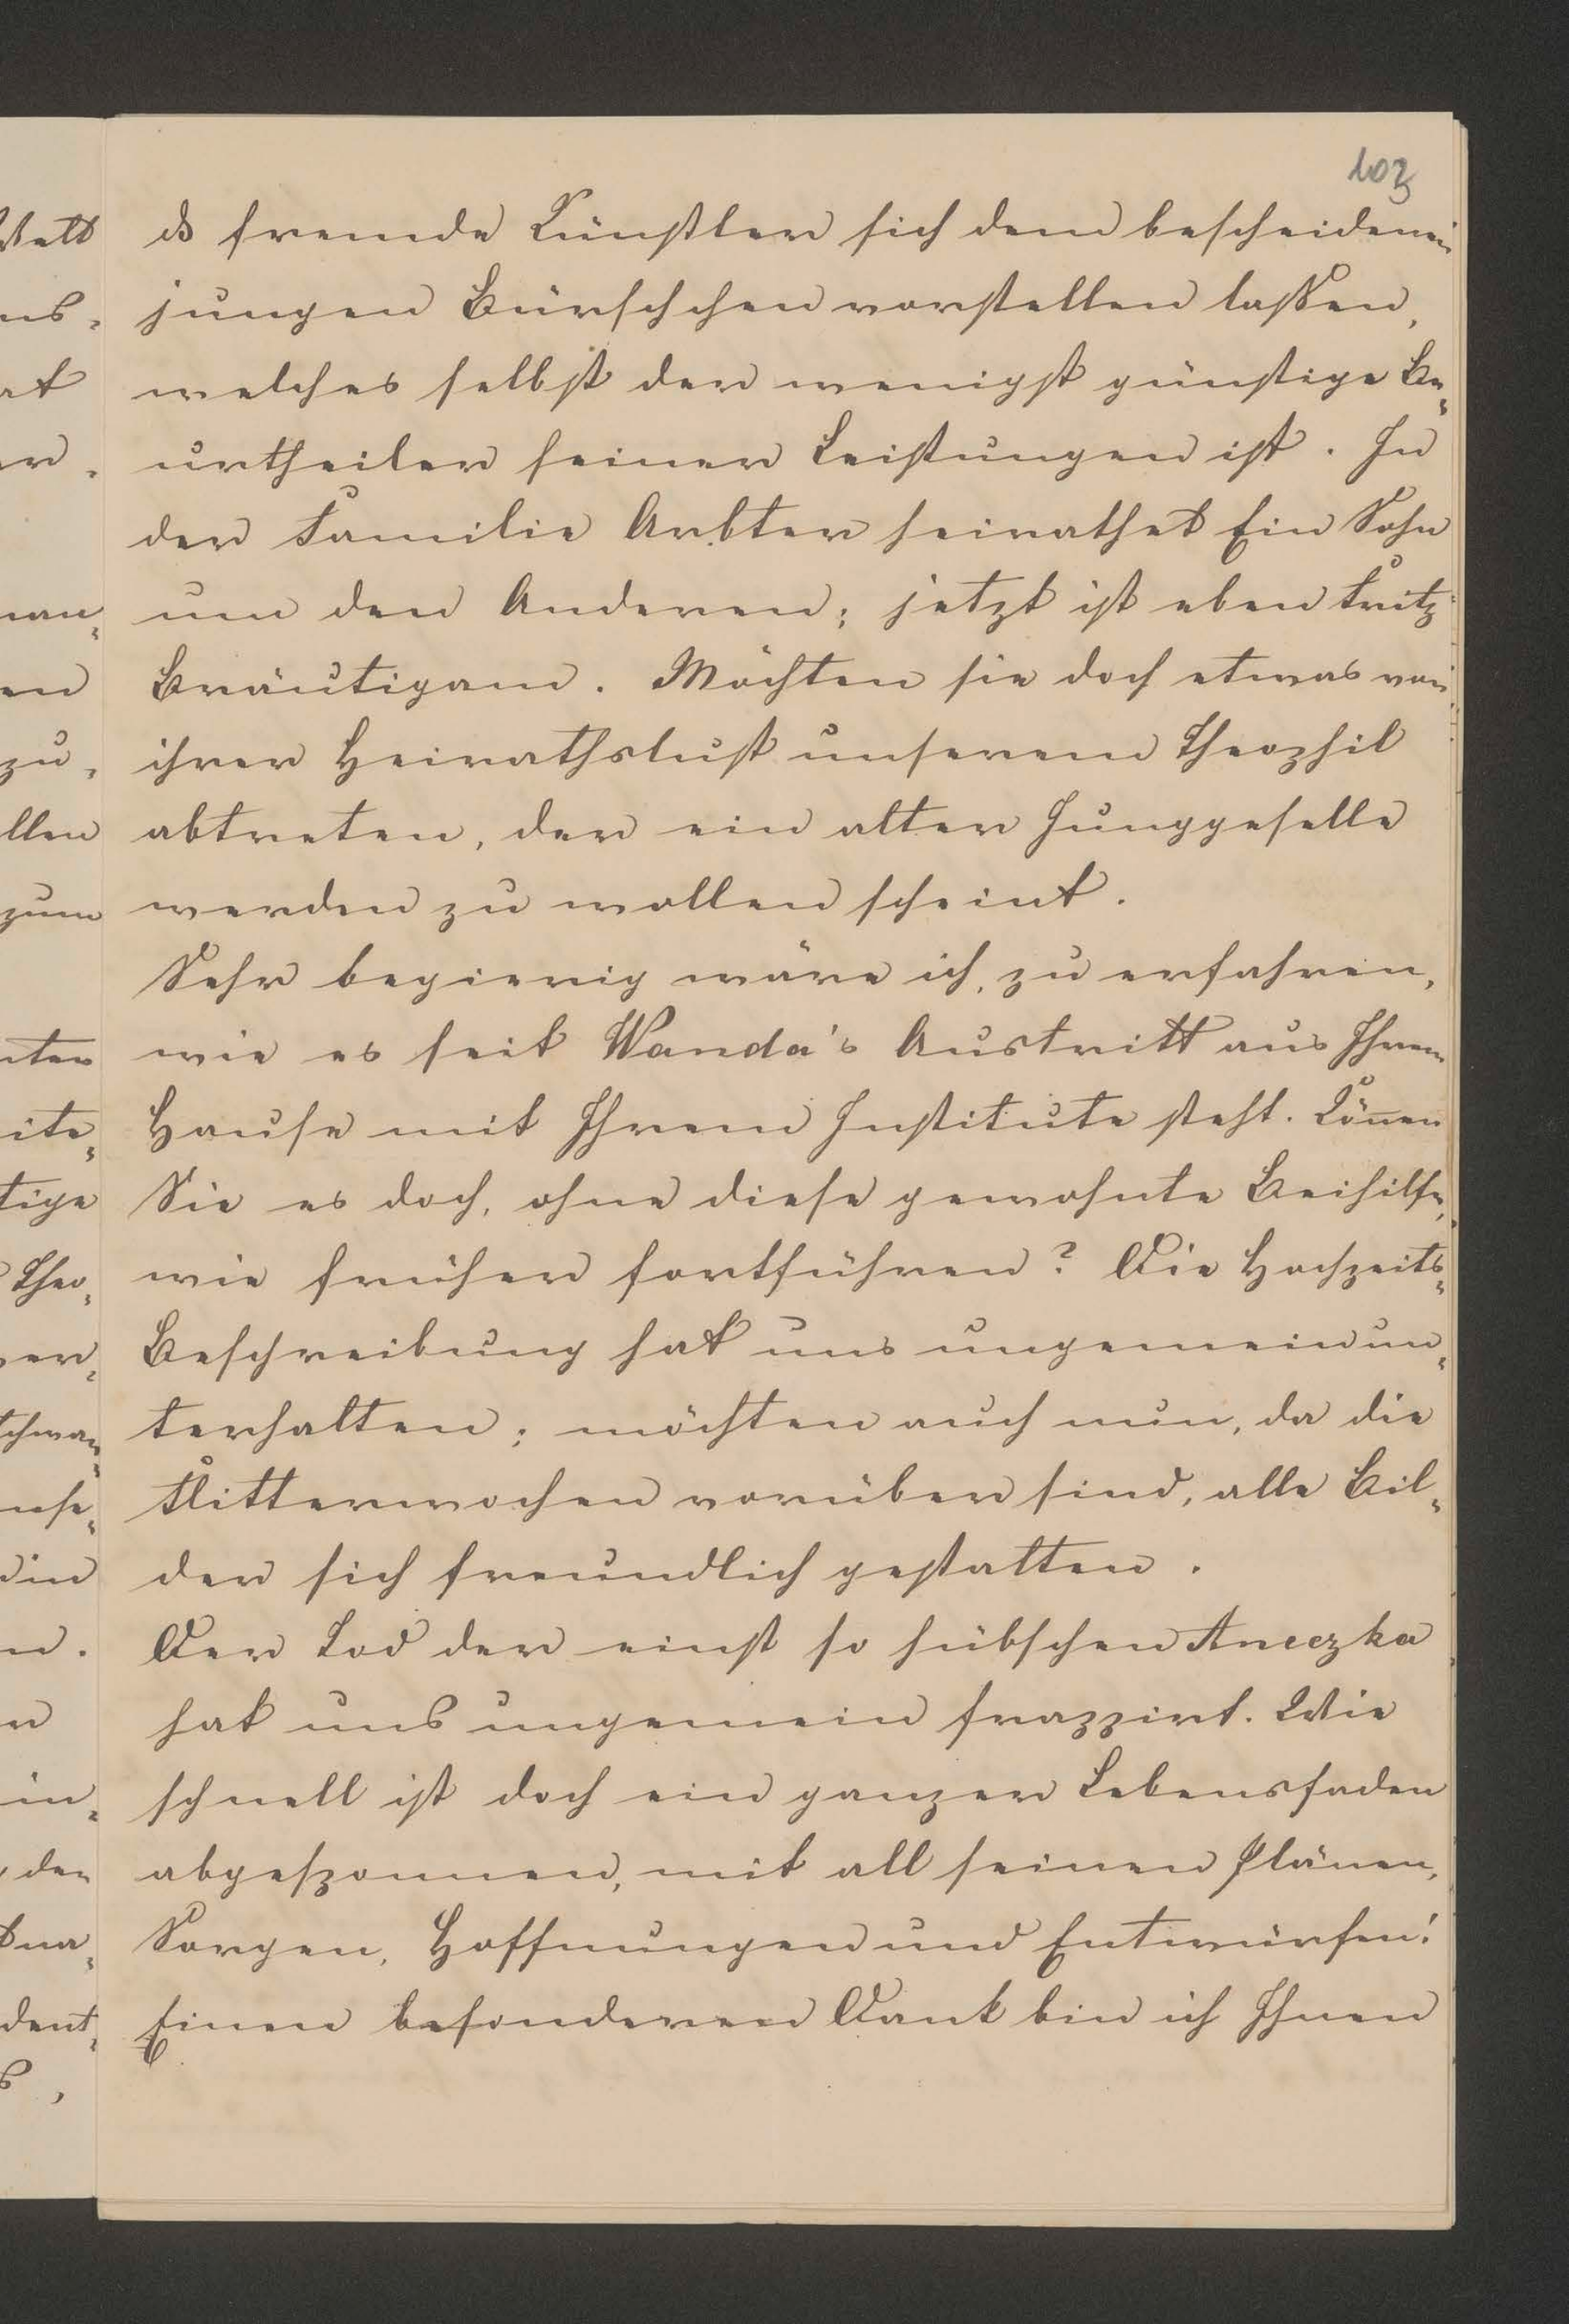 103
ds fremde Künstler sich dem bescheidenen
jungen Bürschchen vorstellen lassen,
welches selbst der wenigst günstige Be-
urtheiler seiner Leistungen ist. In
der Familie Arbter heirathet Ein Sohn
um den Anderen; jetzt ist eben Fritz
Bräutigam. Möchten sie doch etwas von
ihrer Heirathslust unserem Theophil
abtreten, der ein alter Junggeselle
werden zu wollen scheint.
Sehr begierig wäre ich, zu erfahren,
wie es seit Wanda's Austritt aus Ihrem
Hause mit Ihrem Institute steht. Kön̅en
Sie es doch, ohne diese gewohnte Beihilfe,
wie früher fortführen? Die Hochzeits-
Beschreibung hat uns ungemein un-
terhalten; möchten auch nun, da die
Flitterwochen vorüber sind, alle Bil-
der sich freundlich gestalten.
Der Tod der einst so hübschen Aneczka
hat uns ungemein frappirt. Wie
schnell ist doch ein ganzer Lebensfaden
abgesponnen, mit all seinen Plänen,
Sorgen, Hoffnungen und Entwürfen!
Einen besonderen Dank bin ich Ihnen